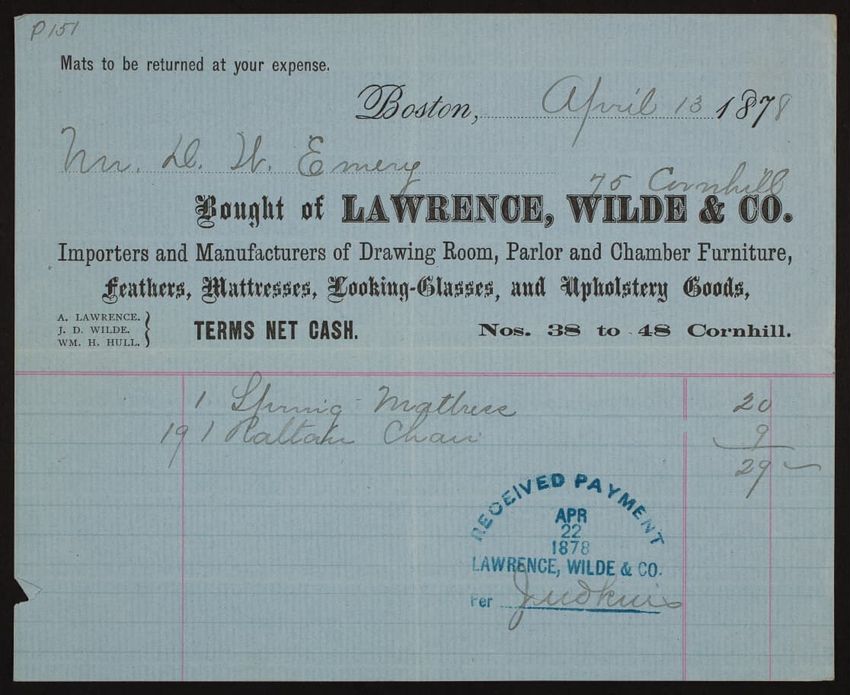 P151
Mats to be returned at your expense.
Boston, April 13 1878
Mr. D. W. Emery
75 Cornhill
Bought of LAWRENCE, WILDE & CO.
Importers and Manufacturers of Drawing Room, Parlor and Chamber Furniture,
Feathers, Mattresses, Looking-Glasses, and Upholstery Goods,
A. LAWRENCE.
J. D. WILDE.
WM. H. HULL.
TERMS NET CASH.
Nos. 38 to 48 Cornhill.
1 Spring Mattress 20
19 1 Rattan Chair 9
29
RECEIVED PAYMENT
APR
22
1878
LAWRENCE, WILDE & CO.
Per Judkins